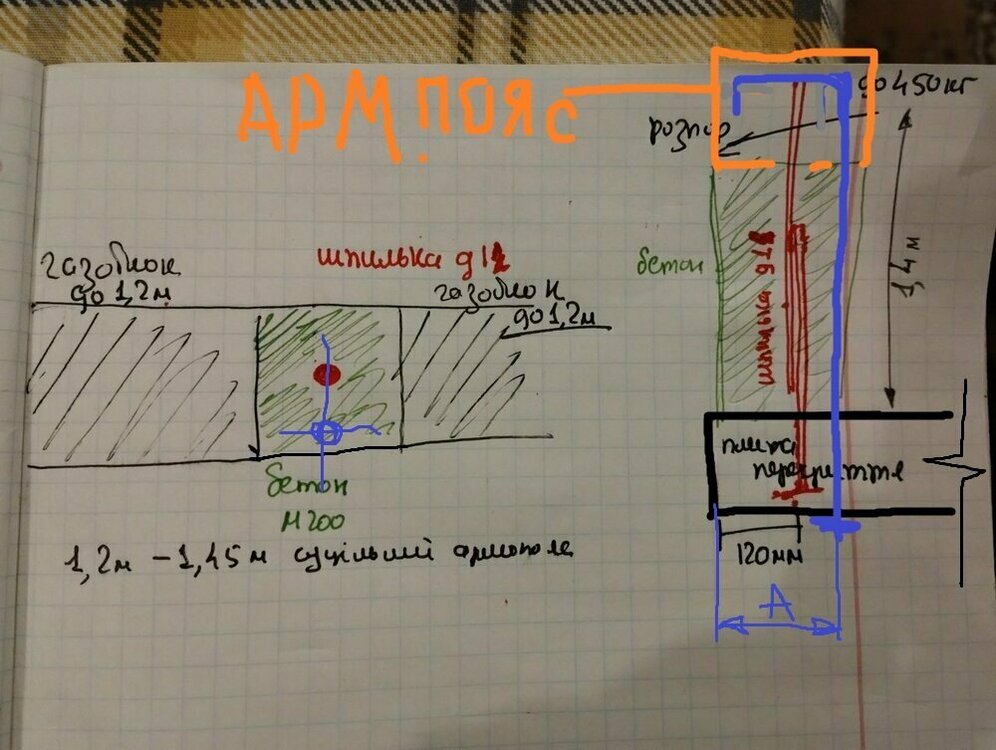 АРМ.ПОЯС
до 450 кг
розпор
газоблок
до 1,2м
шпилька д12
газоблок
до 1,2м
бетон
шпилька д12
1,4м
плита
перекриття
бетон
М200
120мм
1,2м – 1,45м суцільний армопояс
А